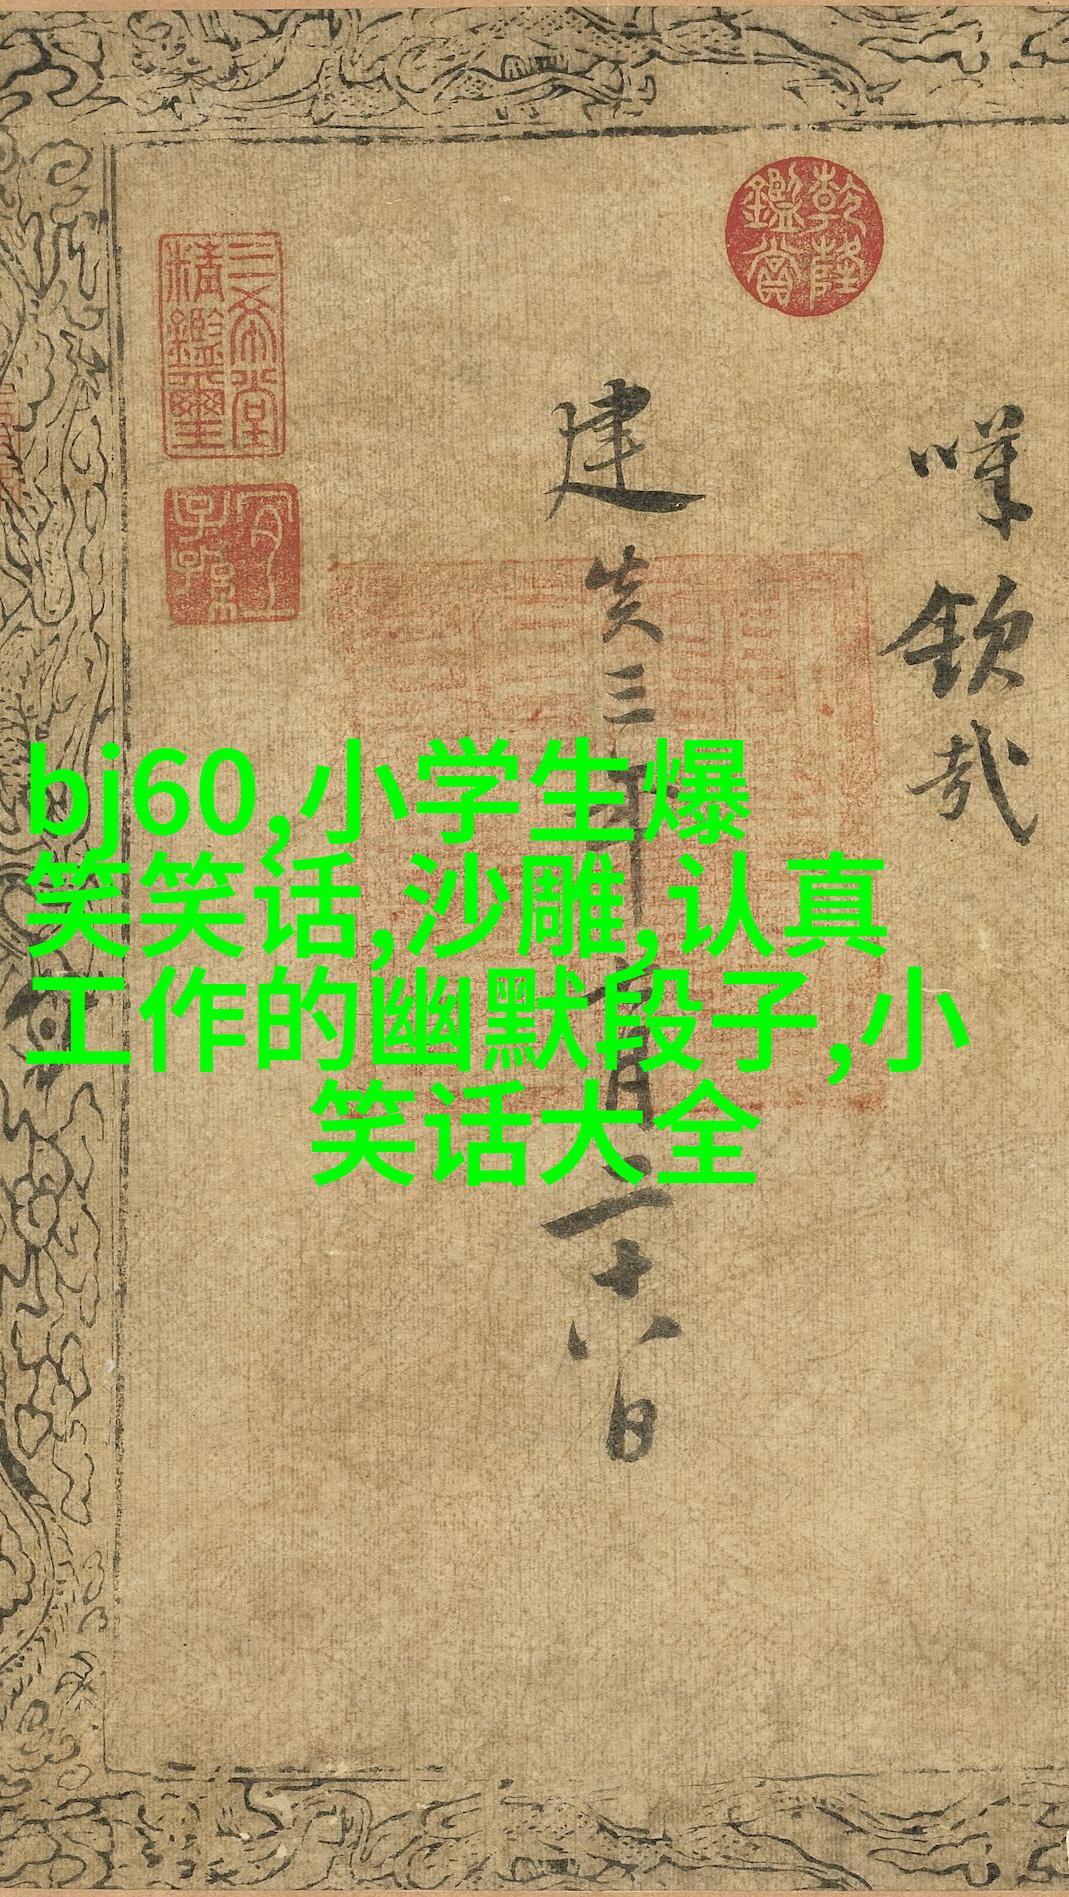 乾隆鑑賞
三希堂精鑑璽
宜子孫
嘆欽哉
建炎三年
月二十八日
bj60,小学生爆
笑笑话,沙雕,认真
工作的幽默段子,小
笑话大全